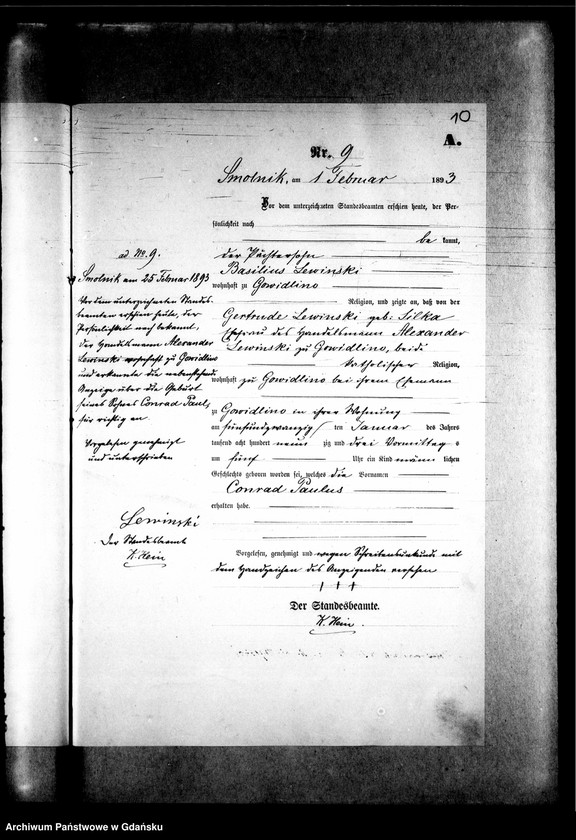 10
A.
Nr. 9
Smolnik, am 1 Februar 1893
Vor dem unterzeichneten Standesbeamten erschien heute, der Per-
sönlichkeit nach
be kannt,
der Pächtersohn
Basilius Lewinski
wohnhaft zu Gowidlino
Religion, und zeigte an, daß von der
Gertrude Lewinski geb: Silka
Ehefrau des Handelsmann Alexander
Lewinski zu Gowidlino, beide
katholischer Religion,
wohnhaft zu Gowidlino bei ihrem Ehemann
zu Gowidlino in ihrer Wohnung
am fünfundzwanzig ten Januar des Jahres
tausend acht hundert neun zig und drei Vormittag s
um fünf Uhr ein Kind männ lichen
Geschlechts geboren worden sei, welches die Vornamen
Conrad Paulus
erhalten habe.
Vorgelesen, genehmigt und wegen Schreibensunkunde mit
dem Handzeichen des Anzeigenden versehen
† † †
Der Standesbeamte.
K. Hein.
ad No. 9.
Smolnik am 25 Februar 1893
Vor dem unterzeichneten Standes
beamten erschien heute, der
Persönlichkeit nach bekannt,
der Handelsmann Alexander
Lewinski wohnhaft zu Gowidlino
und erkannte die nebenstehende
Anzeige über die Geburt
seines Sohnes Conrad Paul,
für richtig an
Vorgelesen genehmigt
und unterschrieben
Lewinski
Der Standesbeamte
K. Hein
Archiwum Państwowe w Gdańsku